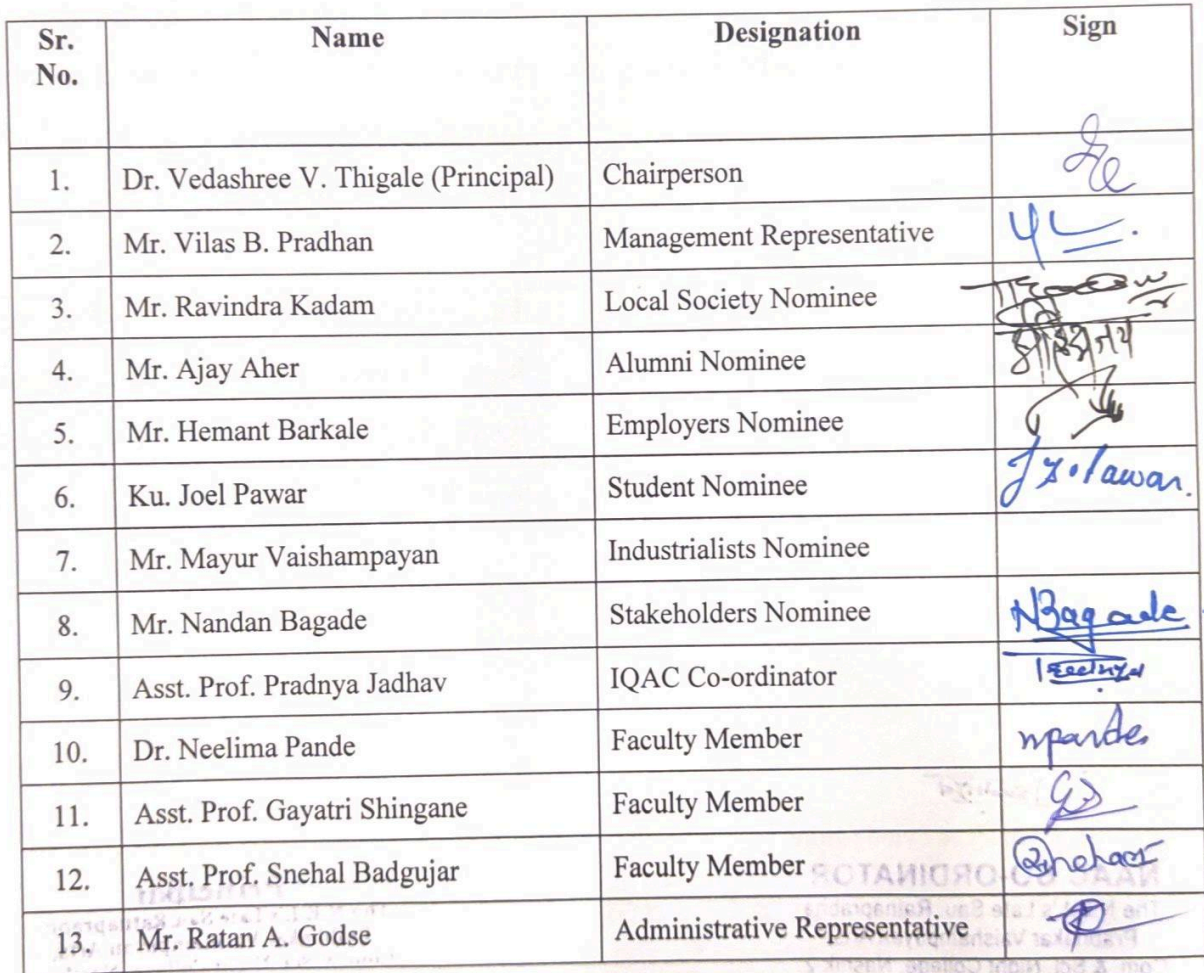 Sr. No. Name Designation Sign
1. Dr. Vedashree V. Thigale (Principal) Chairperson
2. Mr. Vilas B. Pradhan Management Representative
3. Mr. Ravindra Kadam Local Society Nominee
4. Mr. Ajay Aher Alumni Nominee
5. Mr. Hemant Barkale Employers Nominee
6. Ku. Joel Pawar Student Nominee J S Pawar.
7. Mr. Mayur Vaishampayan Industrialists Nominee
8. Mr. Nandan Bagade Stakeholders Nominee NBagade
9. Asst. Prof. Pradnya Jadhav IQAC Co-ordinator
10. Dr. Neelima Pande Faculty Member npande
11. Asst. Prof. Gayatri Shingane Faculty Member
12. Asst. Prof. Snehal Badgujar Faculty Member
13. Mr. Ratan A. Godse Administrative Representative